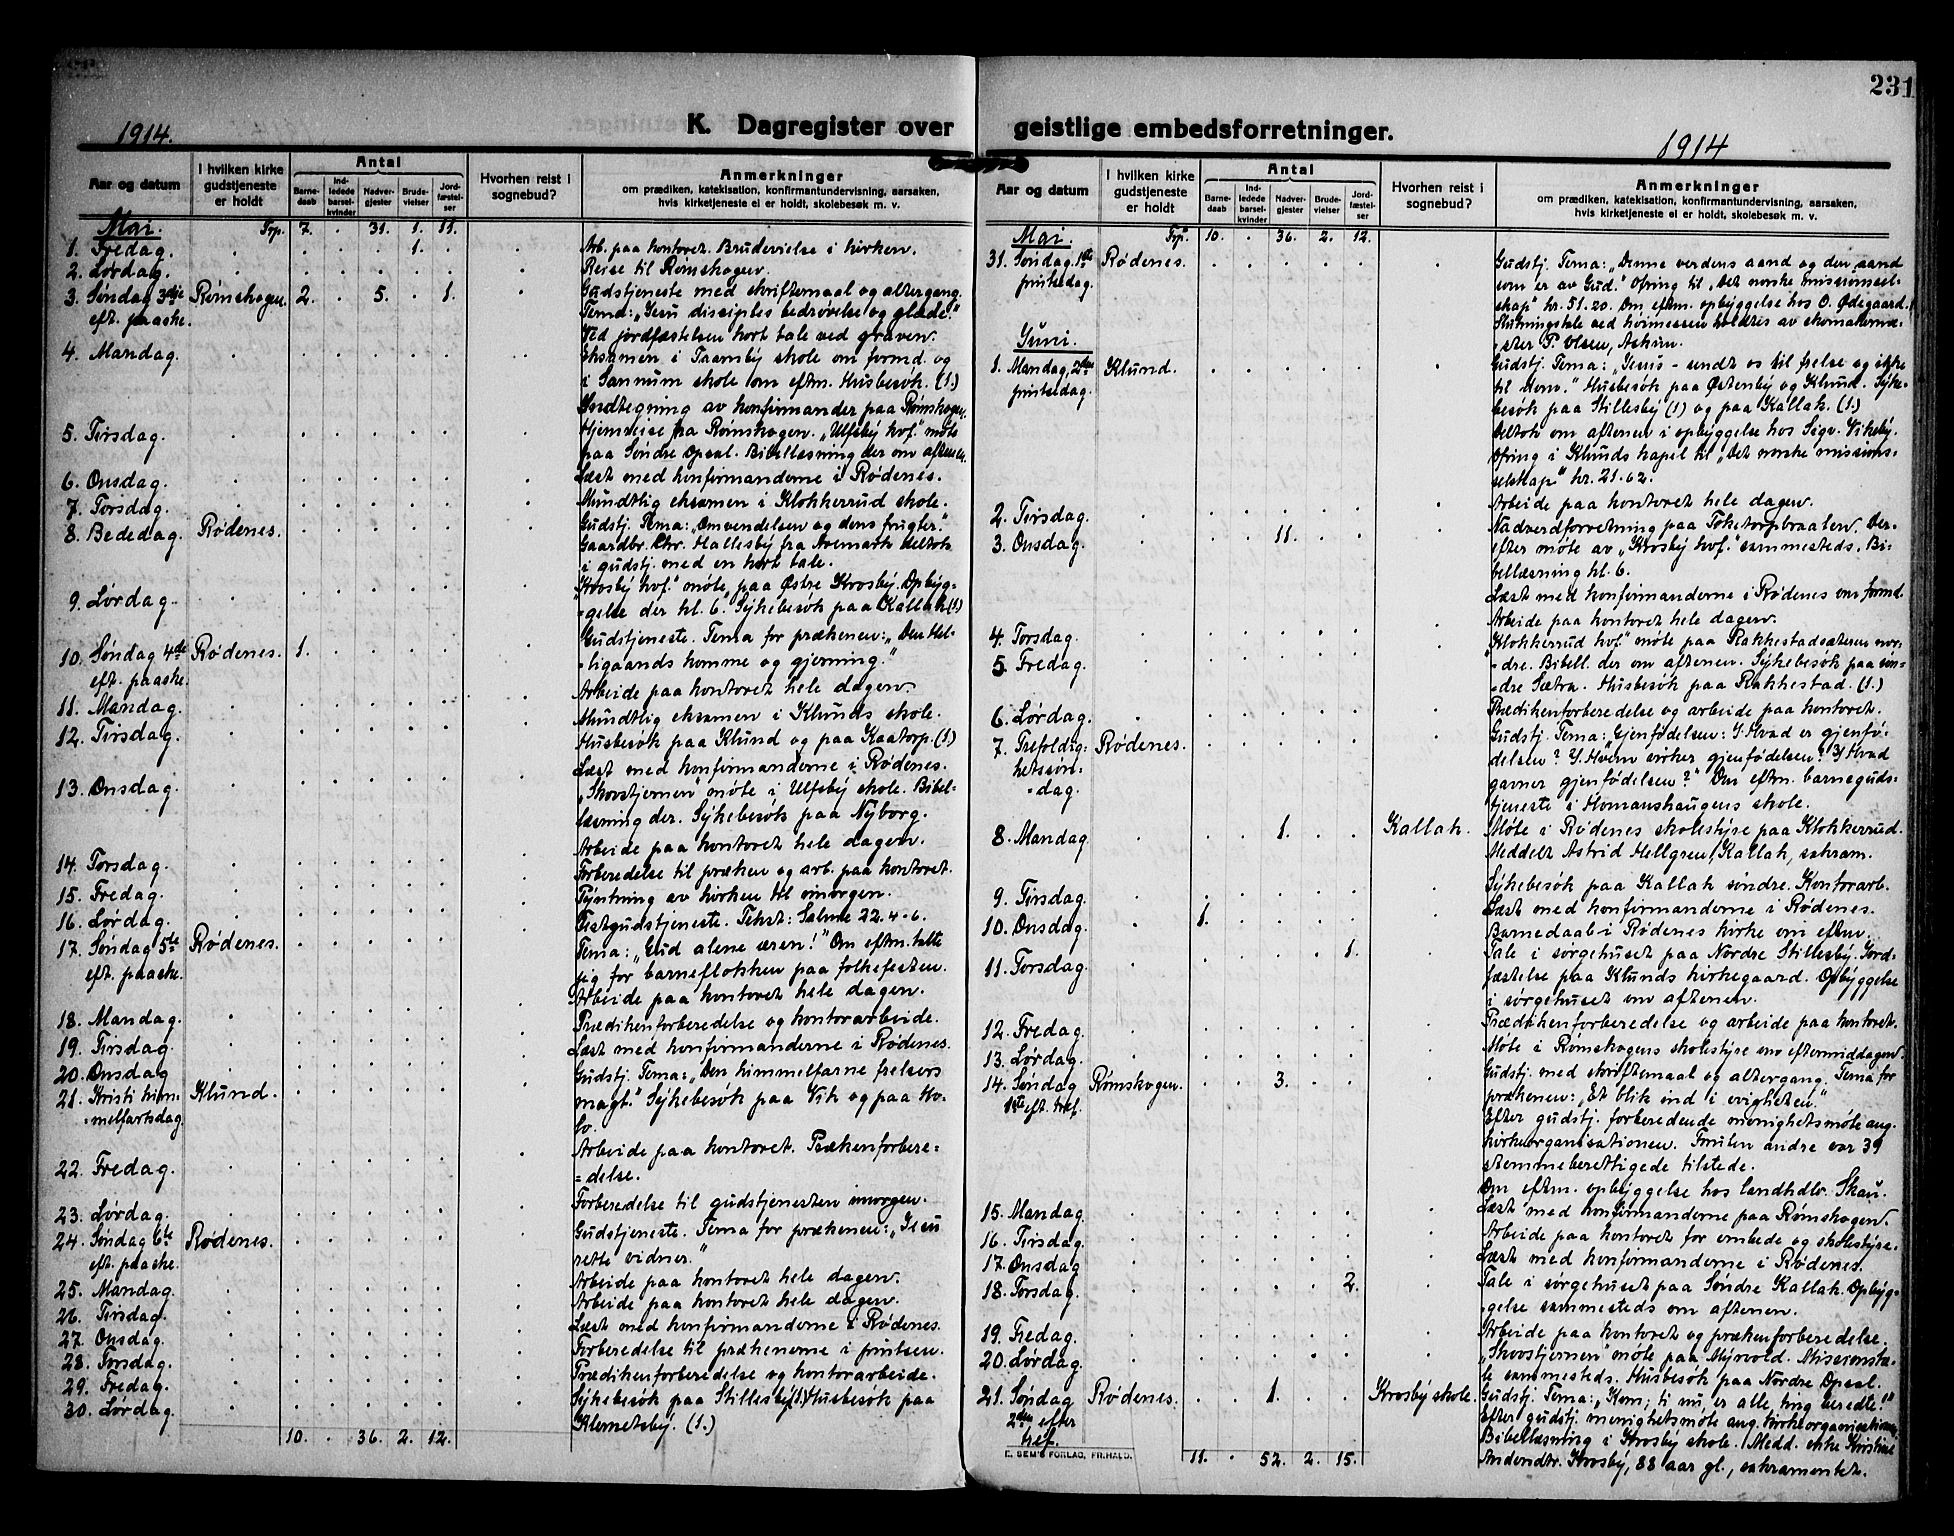 231
1914.
K. Dagregister over geistlige embedsforretninger.
1914
Aar og datum
I hvilken kirke gudstjeneste er holdt
Antal
Barne-daab
Ind-ledede barsel-kvinder
Nadver-gjester
Brude-vielser
Jord-fæstel-ser
Hvorhen reist i sognebud?
Anmerkninger
om prædiken, katekisation, konfirmantundervisning, aarsaken,
hvis kirketjeneste ei er holdt, skolebesøk m. v.
Mai. Trp. 7. . 31. 1. 11.
1. Fredag. 1. Arb. paa kontoret. Brudevielse i kirken.
2. Lørdag. Reise til Rømskogen.
3. Søndag 3dje Rømskogen. 2. . 5. . 1. Gudstjeneste med skriftemaal og altergang.
eft. paaske. Tema: „Jesu disciples bedrøvelse og glæde."
Ved jordfæstelsen kort tale ved graven.
4. Mandag. Eksamen i Tramby skole om formd. og
i Sannum skole om eftm. Husbesøk. (1.)
Indtegning av konfirmander paa Rømskogen.
5. Tirsdag. Hjemreise fra Rømskogen. „Ulfsby kvf." møte
paa Søndre Opsal. Bibellæsning der om aftenen.
6. Onsdag. Læst med konfirmanderne i Rødenes.
7. Torsdag. Mundtlig eksamen i Klokkerrud skole.
8. Bededag. Rødenes. Gudstj. Tema: „Omvendelsen og dens frugter."
Gaardbr. Chr. Hallesby fra Aremark deltok
i gudstj. med en kort tale.
9. Lørdag. „Krosby kvf." møte paa Østre Krosby. Opbyg-
=gelse der kl. 6. Sykebesøk paa Kallak (1)
10. Søndag 4de Rødenes. 1. Gudstjeneste. Tema for prækenen: „Den Hel-
eft. paaske. =ligaands komme og gjerning."
11. Mandag. Arbeide paa kontoret hele dagen.
12. Tirsdag. Mundtlig eksamen i Klunds skole.
Husbesøk paa Klund og paa Kaatorp. (1)
13. Onsdag. Læst med konfirmanderne i Rødenes.
„Skovstjernen" møte i Ulfsby skole. Bibel-
læsning der. Sykebesøk paa Nyborg.
14. Torsdag. Arbeide paa kontoret hele dagen.
15. Fredag. Forberedelse til præken og arb. paa kontoret.
16. Lørdag. Pyntning av kirken til imorgen.
17. Søndag 5te Rødenes. Festgudstjeneste. Tekst: Salme 22. 4-6.
eft. paaske. Tema: „Gud alene æren!" Om eftm. talte
jeg for barneflokken paa folkefesten.
18. Mandag. Arbeide paa kontoret hele dagen.
19. Tirsdag. Prædikenforberedelse og kontorarbeide.
20. Onsdag Læst med konfirmanderne i Rødenes.
21. Kristi him- Klund. Gudstj. Tema: „Den himmelfarne frelsers
=melfartsdag. magt." Sykebesøk paa Vik og paa
22. Fredag. Arbeide paa kontoret. Prækenforbere=
=delse.
23. Lørdag. Forberedelse til gudstjenesten imorgen.
24. Søndag 6te Rødenes. Gudstjeneste. Tema for prækenen: „Jesu
eft. paaske. rette vidner."
25. Mandag. Arbeide paa kontoret hele dagen.
26. Tirsdag. Arbeide paa kontoret hele dagen.
27. Onsdag. Læst med konfirmanderne i Rødenes.
28. Torsdag. Forberedelse til prækenerne i pintsen.
29. Fredag. Prædikenforberedelse og kontorarbeide.
30. Lørdag. Sykebesøk paa Stillesby (1) Husbesøk paa
Klemetsby. (1.)
10. . 36. 2. 12.
Aar og datum
I hvilken kirke gudstjeneste er holdt
Antal
Barne-daab
Ind-ledede barsel-kvinder
Nadver-gjester
Brude-vielser
Jord-fæstel-ser
Hvorhen reist i sognebud?
Anmerkninger
om prædiken, katekisation, konfirmantundervisning, aarsaken,
hvis kirketjeneste ei er holdt, skolebesøk m. v.
Mai. Trp. 10. . 36. 2. 12.
31. Søndag. 1ste Rødenes. Gudstj. Tema: „Denne verdens aand og den aand
pintsedag. som er av Gud." Ofring til „Det norske missionssel-
skap" kr. 51.20. Om eftm. opbyggelse hos O. Ødegaard.
Slutningstale ved høimessen holdtes av skomakerme-
Juni. ster P. Olsen, Askim.
1. Mandag, 2den Klund. Gudstj. Tema: „Jesus - sendt os til frelse og ikke
pintsedag. til dom." Husbesøk paa Østenby og Klund. Syke-
besøk paa Stillesby (1) og paa Kallak. (1.)
Deltok om aftenen i opbyggelse hos Sigv. Vikeby.
Ofring i Klunds kapel til „Det norske missions-
selskap" kr. 21.62.
2. Tirsdag. Arbeide paa kontoret hele dagen.
3. Onsdag. 11. Nadverdforretning paa Toketorpbraaten. Der-
efter møte av „Krosby kvf." sammesteds. Bi-
bellæsning kl. 6.
Læst med konfirmanderne i Rødenes om formd.
4. Torsdag. Arbeide paa kontoret hele dagen.
5. Fredag. „Klokkerrud kvf." møte paa Rakkestadsæteren nor-
=dre. Bibell. der om aftenen. Sykebesøk paa søn-
=dre Sætra. Husbesøk paa Rakkestad. (1.)
6. Lørdag. Prædikenforberedelse og arbeide paa kontoret.
7. Trefoldig= Rødenes. Gudstj. Tema: „Gjenfødelsen: 1/ Hvad er gjenfø-
hetssøn- delsen? 2/ Hvem virker gjenfødelsen? 3/ Hvad
=dag. gavner gjenfødelsen?" Om eftm. barneguds-
tjeneste i Homanshaugens skole.
8. Mandag 1. Kallak. Møte i Rødenes skolestyre paa Klokkerrud.
Meddelt Astrid Hellgren, Kallak, sakram.
9. Tirsdag. Sykebesøk paa Kallak søndre. Kontorarb.
10. Onsdag. 1. Læst med konfirmanderne i Rødenes.
Barnedaab i Rødenes kirke om eftm.
11. Torsdag. 1. Tale i sørgehuset paa Nordre Stillesby. Jord-
fæstelse paa Klunds kirkegaard. Opbyggelse
i sørgehuset om aftenen.
12. Fredag. Prædikenforberedelse og arbeide paa kontoret.
13. Lørdag. Møte i Rømskogens skolestyre om eftermiddagen.
14. Søndag Rømskogen. 3. Gudstj. med skriftemaal og altergang. Tema for
1ste eft. tref. prækenen: „Et blik ind i evigheten."
Efter gudstj. forberedende menighetsmøte ang.
kirkeorganisationen. Foruten andre var 39
stemmeberettigede tilstede.
Om eftm. opbyggelse hos landhdlr. Skau.
15. Mandag. Læst med konfirmanderne paa Rømskogen.
16. Tirsdag. Arbeide paa kontoret for embede og skolestyre.
17. Onsdag Læst med konfirmanderne i Rødenes.
18. Torsdag. 2. Tale i sørgehuset paa Søndre Kallak. Opbyg-
=gelse sammesteds om aftenen.
19. Fredag. Arbeide paa kontoret og prækenforberedelse.
20. Lørdag. „Skovstjernen" møte paa Myrvold. Missionsta-
le sammesteds. Husbesøk paa Nordre Opsal.
21. Søndag Rødenes. 1. Krosby skole. Gudstj. Tema: „Kom; ti nu er alle ting beredte!"
2den efter Efter gudstj. menighetsmøte ang. kirkeorganisationen.
tref. Bibellæsning i Krosby skole. Medd. enke Kristine
Andersdtr. Krosby, 88 aar gl., sakramentet.
11. . 52. 2. 15.
E. SEM'S FORLAG, FR.HALD.